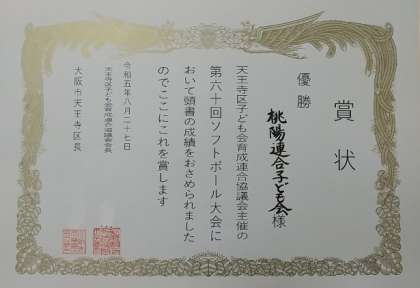 賞状
優勝
桃陽連合子ども会様
天王寺区子ども会育成連合協議会主催の
第六十回ソフトボール大会に
おいて頭書の成績をおさめられました
のでここにこれを賞します
令和五年八月二十七日
天王寺区子ども会育成連合協議会会長
大阪市天王寺区長